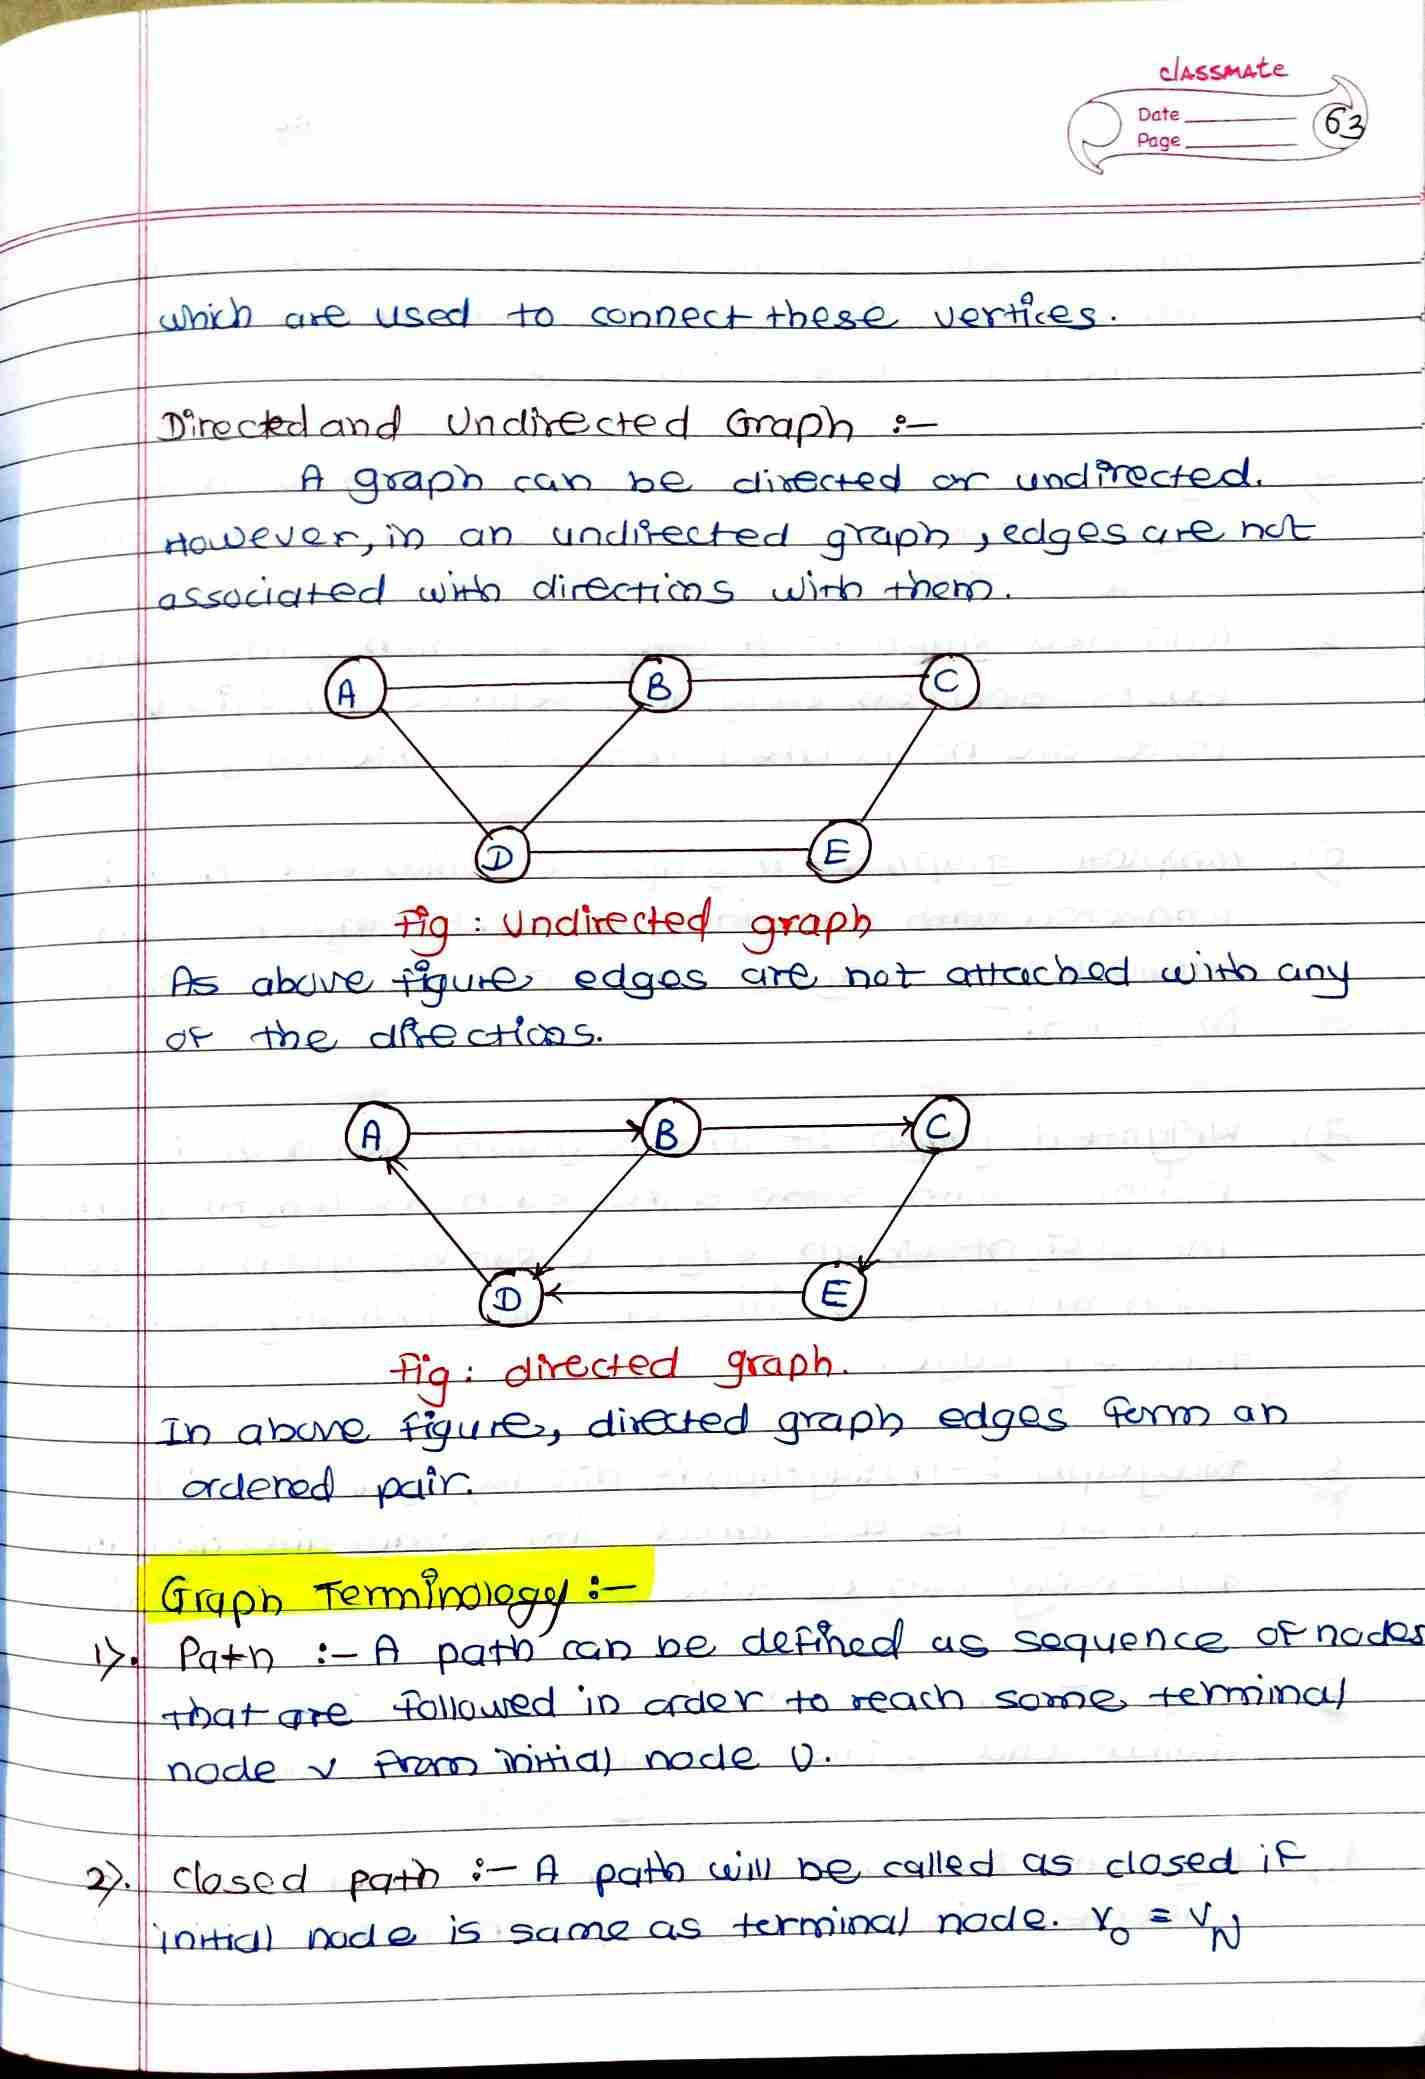 classmate
Date
Page
63
which are used to connect these vertices.
Directed and Undirected Graph :-
A graph can be directed or undirected.
However, in an undirected graph, edges are not
associated with directions with them.
A B C
D E
Fig : Undirected graph
As above figure edges are not attached with any
of the directions.
A B C
D E
Fig : directed graph.
In above figure, directed graph edges form an
ordered pair.
Graph Terminology :-
1). Path :- A path can be defined as sequence of nodes
that are followed in order to reach some terminal
node v from initial node U.
2). Closed path :- A path will be called as closed if
initial node is same as terminal node. V₀ = V_N